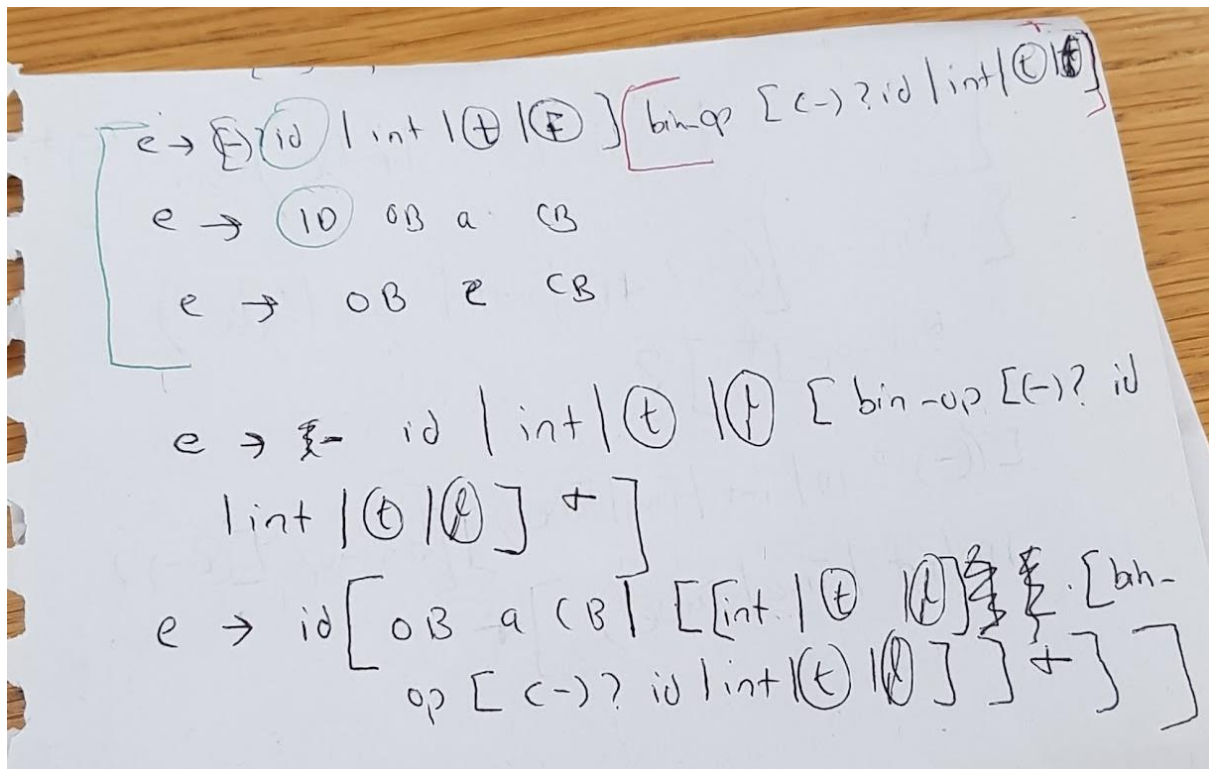 e → [(-)? id | int | t | F ] [ bin-op [ (-) ? id | int | t | f ] +
e → ID OB a CB
e → OB e CB
e → id | int | t | f [ bin-op [(-)? id
| int | t | f ] + ]
e → id [ OB a CB | [ [int | t | f ] . [bin-
op [ (-) ? id | int | t | f ] ] + ] ]